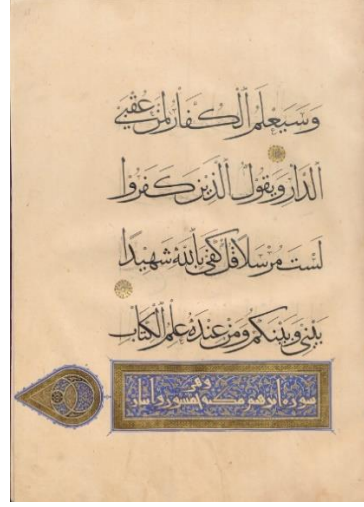 وَسَيَعْلَمُ الْكُفَّارُ لِمَنْ عُقْبَى
الدَّارِ وَيَقُولُ الَّذِينَ كَفَرُوا
لَسْتَ مُرْسَلًا قُلْ كَفَى بِاللَّهِ شَهِيدًا
بَيْنِي وَبَيْنَكُمْ وَمَنْ عِنْدَهُ عِلْمُ الْكِتَابِ
وهي
سورة ابرهيم خمسون واثنان